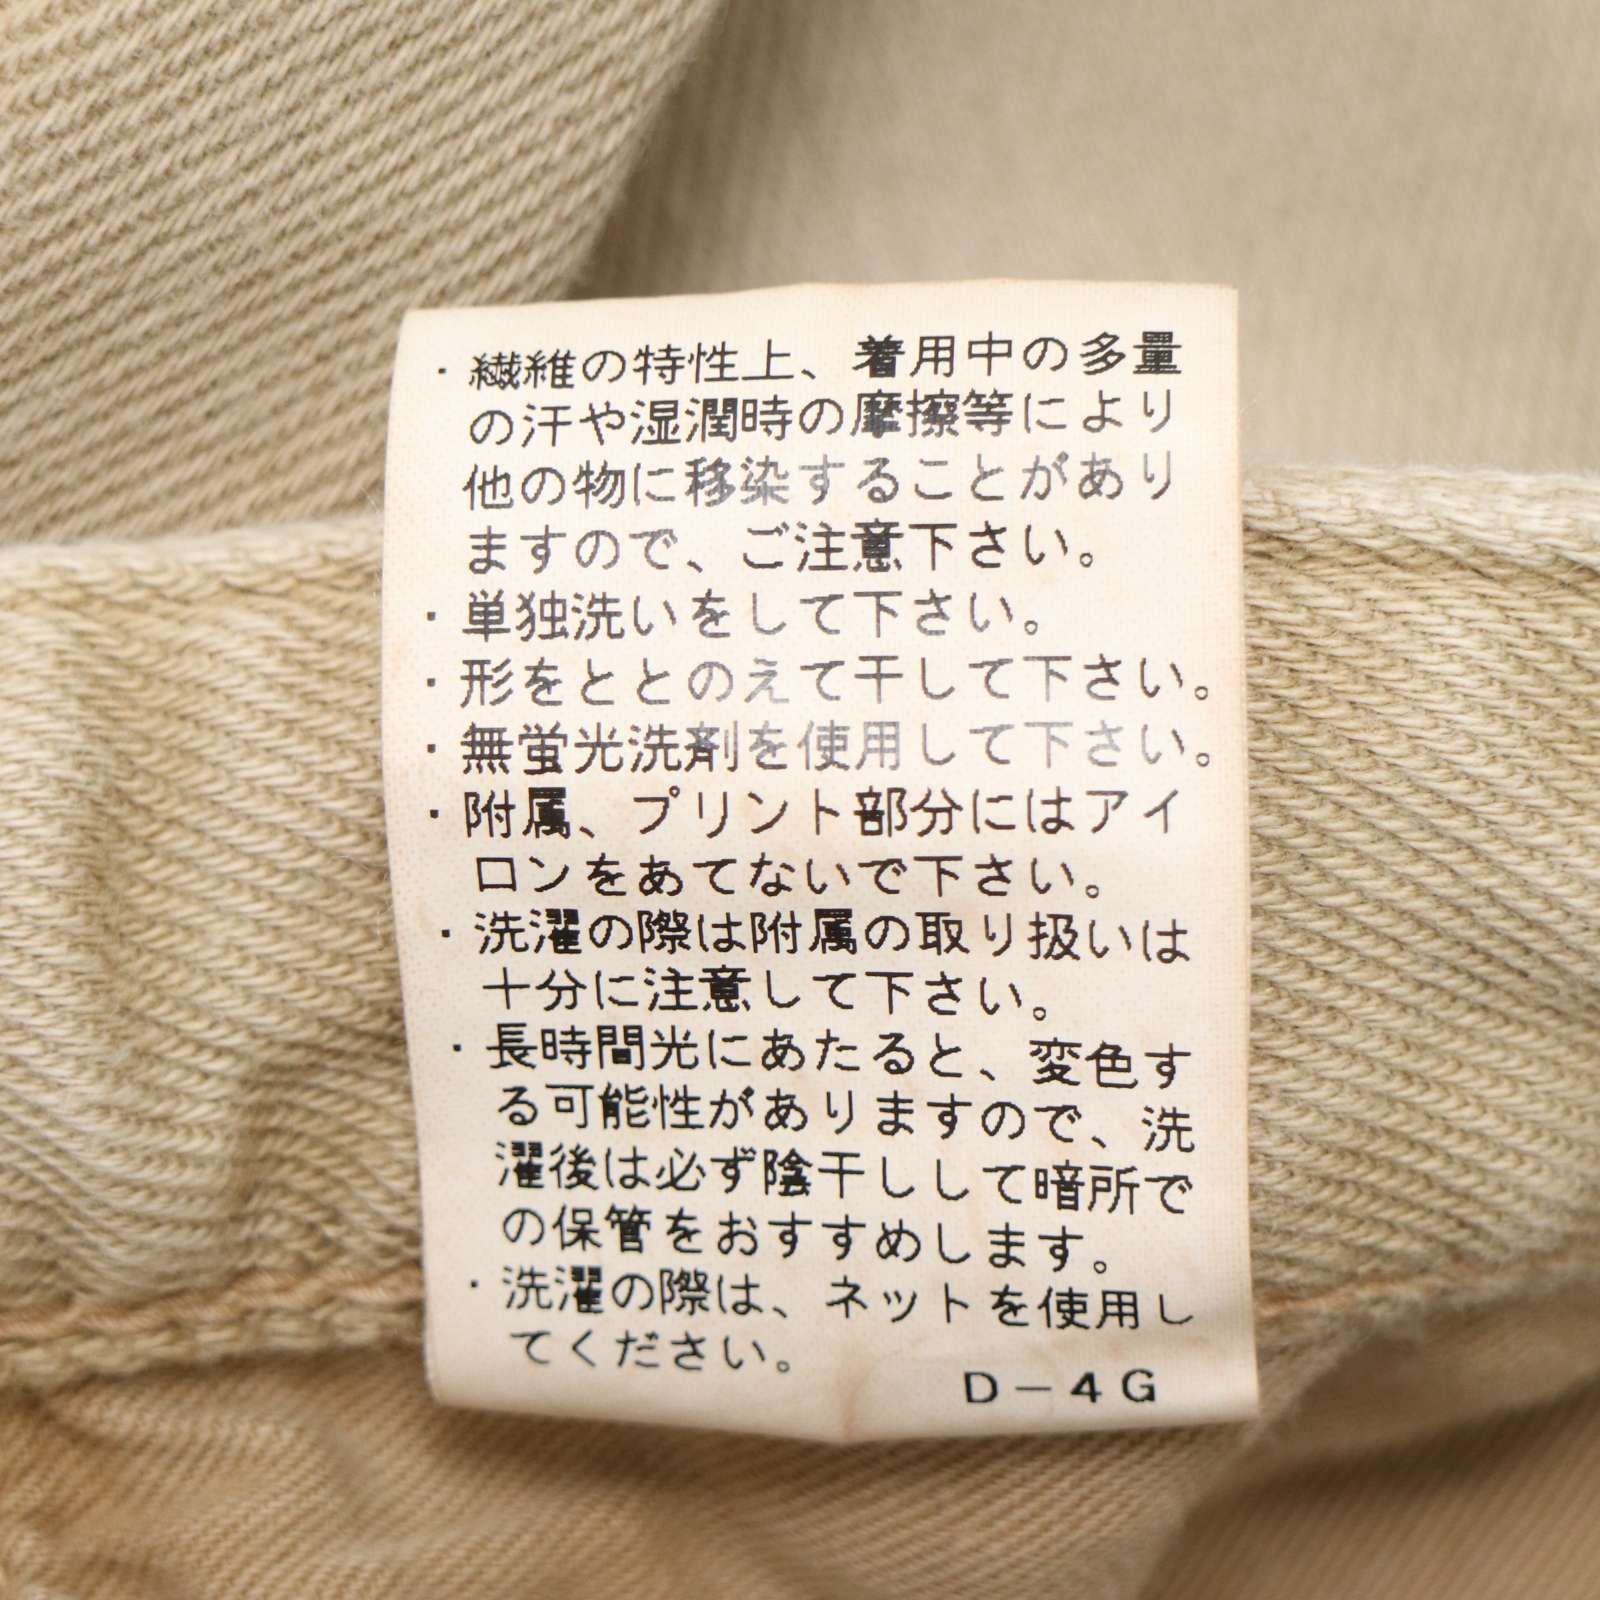 ・繊維の特性上、着用中の多量
の汗や湿潤時の摩擦等により
他の物に移染することがあり
ますので、ご注意下さい。
・単独洗いをして下さい。
・形をととのえて干して下さい。
・無蛍光洗剤を使用して下さい。
・附属、プリント部分にはアイ
ロンをあてないで下さい。
・洗濯の際は附属の取り扱いは
十分に注意して下さい。
・長時間光にあたると、変色す
る可能性がありますので、洗
濯後は必ず陰干しして暗所で
の保管をおすすめします。
・洗濯の際は、ネットを使用し
てください。
D-4G